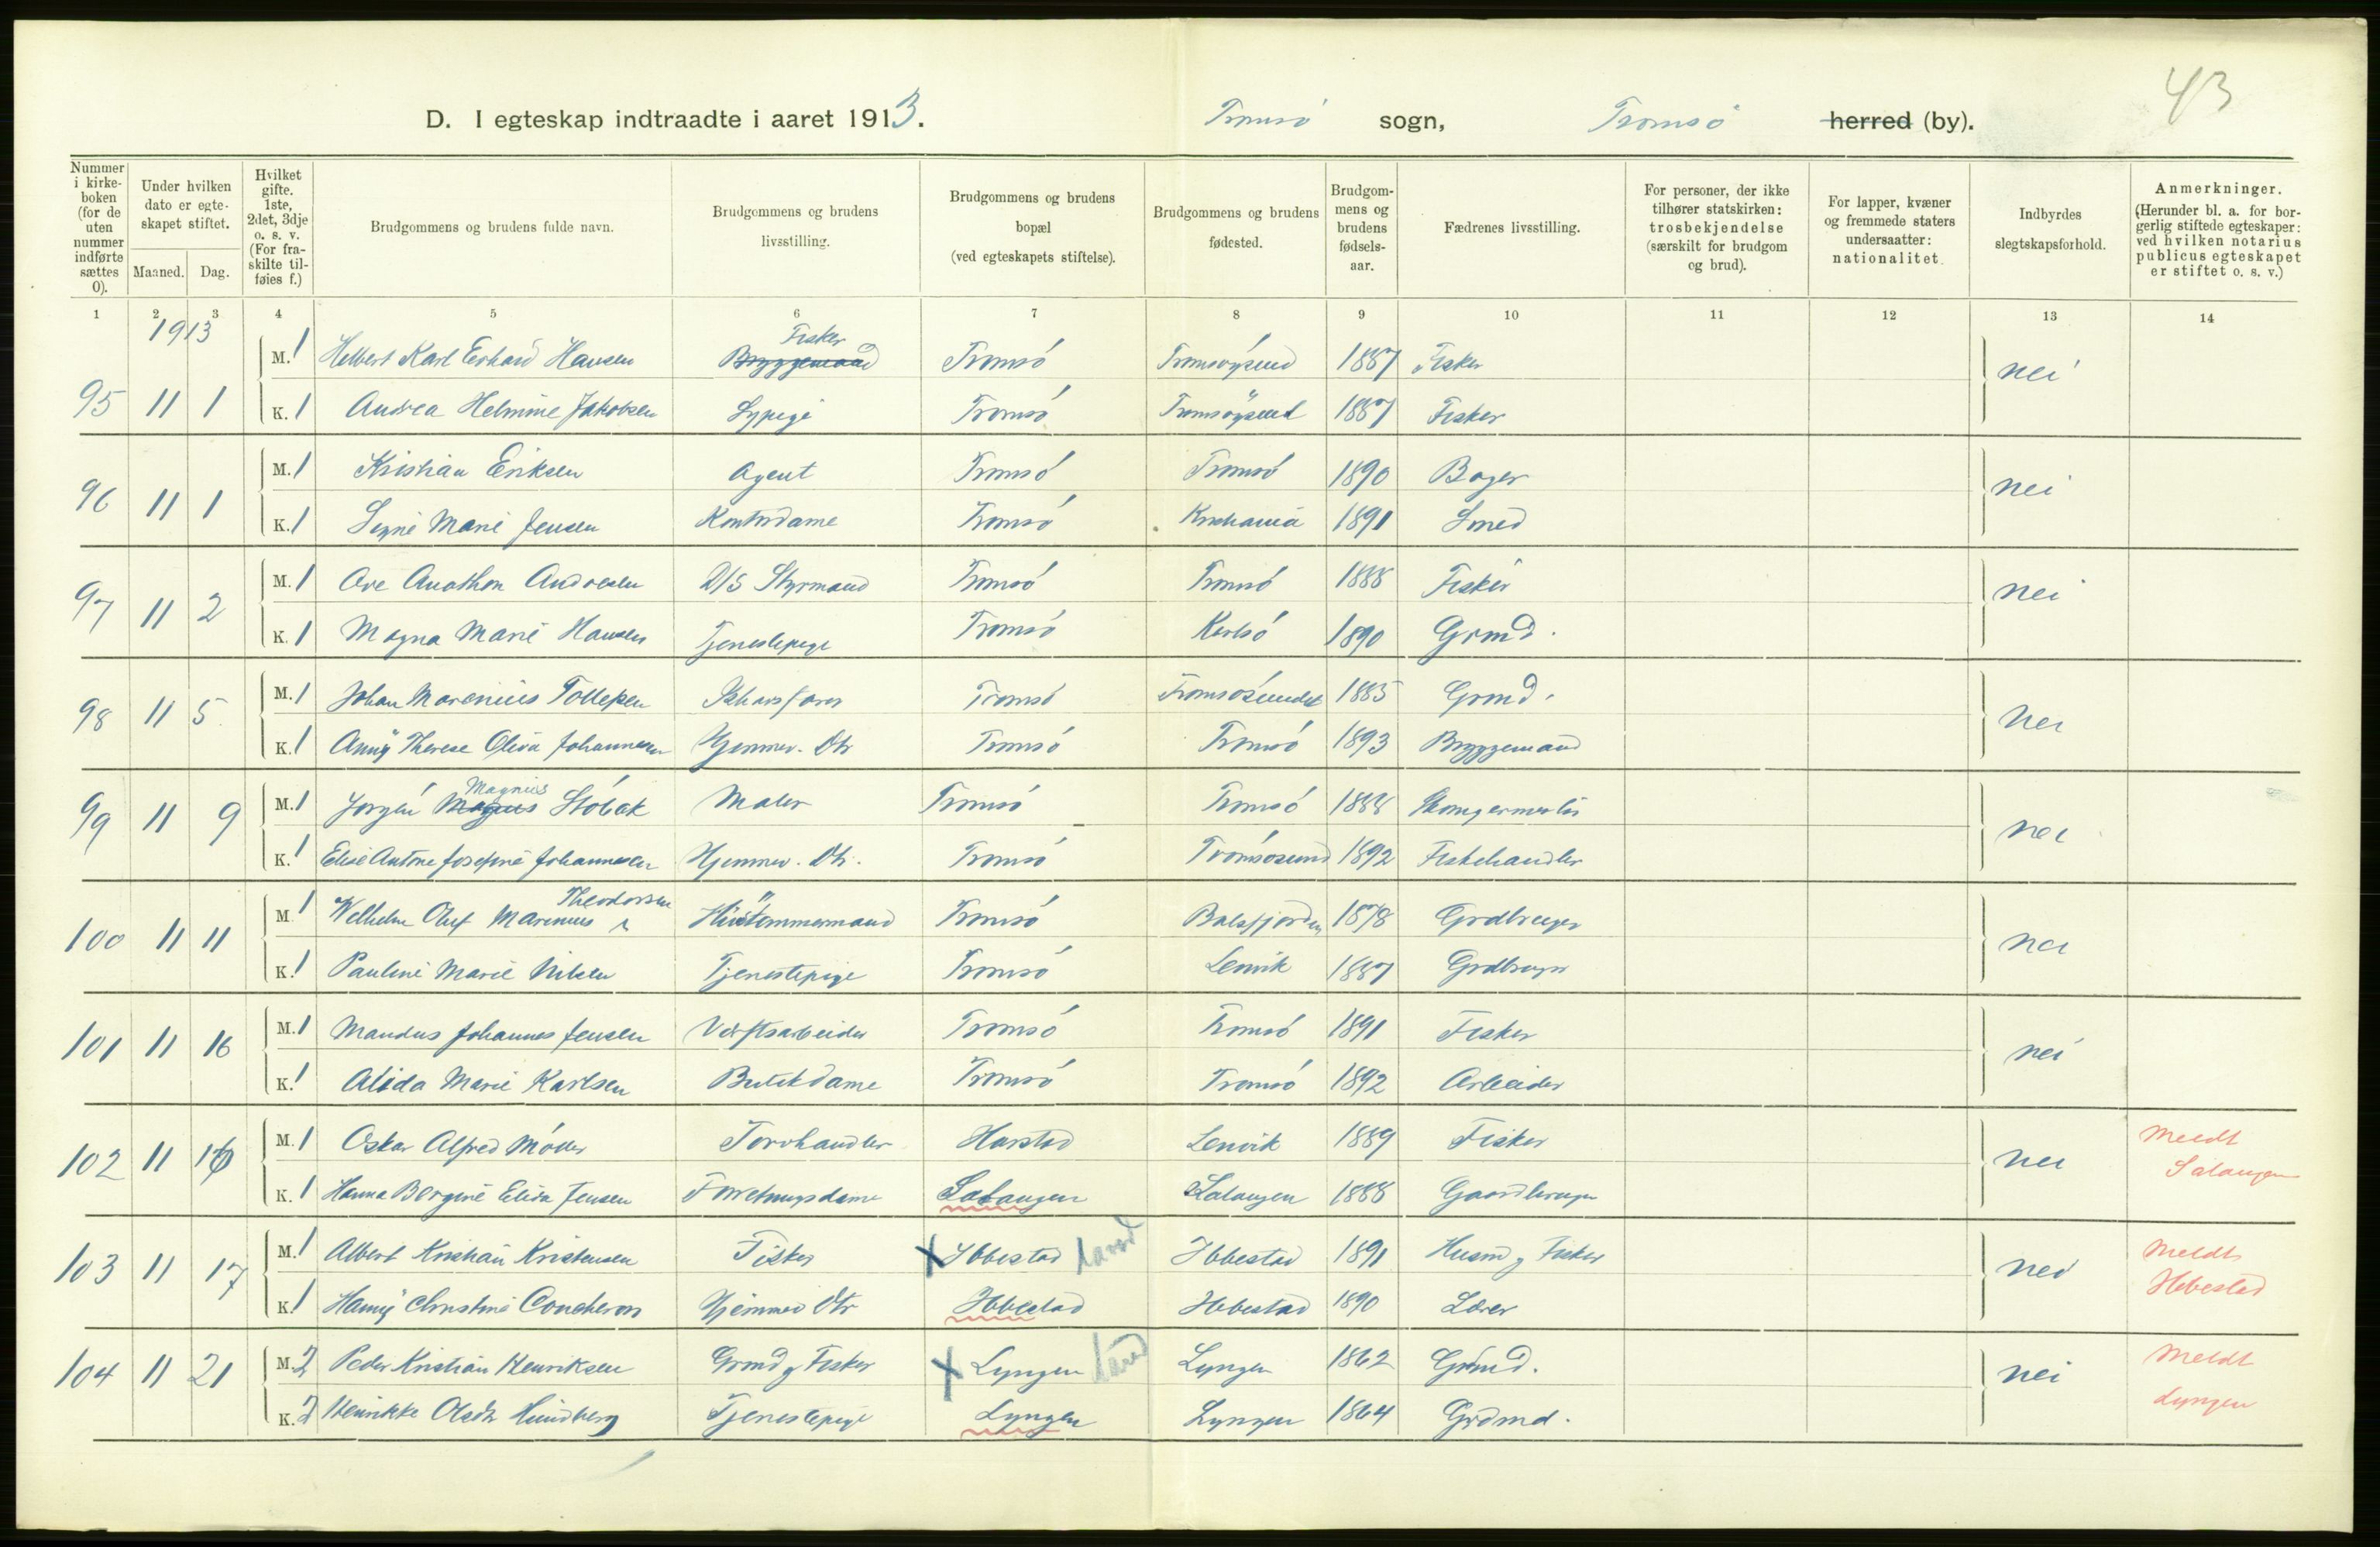 43
D. I egteskap indtraadte i aaret 1913. Tromsö sogn, Tromsö herred (by).
Nummer i kirke-boken (for de uten nummer indførte sættes 0).
Under hvilken dato er egte-skapet stiftet.
Maaned. Dag.
Hvilket gifte. 1ste, 2det, 3dje o. s. v. (For fra-skilte til-føies f.)
Brudgommens og brudens fulde navn.
Brudgommens og brudens livsstilling.
Brudgommens og brudens bopæl (ved egteskapets stiftelse).
Brudgommens og brudens fødested.
Brudgom-mens og brudens fødsels-aar.
Fædrenes livsstilling.
For personer, der ikke tilhører statskirken: trosbekjendelse (særskilt for brudgom og brud).
For lapper, kvæner og fremmede staters undersaatter: nationalitet.
Indbyrdes slegtskapsforhold.
Anmerkninger. (Herunder bl. a. for bor-gerlig stiftede egteskaper: ved hvilken notarius publicus egteskapet er stiftet o. s. v.)
1 2 3 4 5 6 7 8 9 10 11 12 13 14
1913
Fisker
M. 1 Helbert Karl Erhard Hansen Bryggemand Tromsö Tromsöysund 1887 Fisker nei
95 11 1 K. 1 Andrea Helmine Jakobsen Sypige Tromsö Tromsöysund 1887 Fisker
M. 1 Kristian Eriksen Agent Tromsö Tromsö 1890 Bager
96 11 1 nei
K. 1 Signe Marie Jensen Kontordame Tromsö Kristiania 1891 Smed
M. 1 Ove Anathon Andresen D/S Styrmand Tromsö Tromsö 1888 Fisker
97 11 2 nei
K. 1 Magna Marie Hansen Tjenestepige Tromsö Karlsö 1890 Grmd.
M. 1 Johan Marenius Tollefsen Ishavsfarer Tromsö Tromsösundet 1885 Grmd.
98 11 5 nei
K. 1 Anny Therese Oliva Johannesen Hjemmev. Dtr Tromsö Tromsö 1893 Bryggemand
Magnus
99 11 9 M. 1 Jørgen Magnus Stöbak Maler Tromsö Tromsö 1888 nei
K. 1 Elise Antone Josefine Johannesen Hjemmev. Dtr. Tromsö Tromsösund 1892 Fiskehandler
Theodorsen
M. 1 Wilhelm Oluf Marenius Hustömmermand Tromsö Balsfjorden 1878 Grdbruger
100 11 11 nei
K. 1 Pauline Marie Nilsen Tjenestepige Tromsö Lenvik 1887 Grdbruger
M. 1 Mandus Johannes Jensen Verftsarbeider Tromsö Tromsö 1891 Fisker
101 11 16 nei
K. 1 Alida Marie Karlsen Butikdame Tromsö Tromsö 1892 Arbeider
M. 1 Oskar Alfred Möller Torvhandler Harstad Lenvik 1889 Fisker Meldt
102 11 16 nei Salangen
K. 1 Hanna Bergine Elida Jensen Forretningsdame Salangen Salangen 1888 Gaardbruger
M. 1 Albert Kristian Kristensen Fisker X Ibbestad land Ibbestad 1891 Husmd og Fisker Meldt
103 11 17 nei Ibbestad
K. 1 Hanny Christine Coucheron Hjemmev Dtr Ibbestad Ibbestad 1890 Lærer
M. 2 Peder Kristian Henriksen Grmd og Fisker X Lyngen land Lyngen 1862 Grmd. Meldt
104 11 21 nei Lyngen
K. 2 Henrikke Olsdtr Hundberg Tjenestepige Lyngen Lyngen 1864 Grdmd.